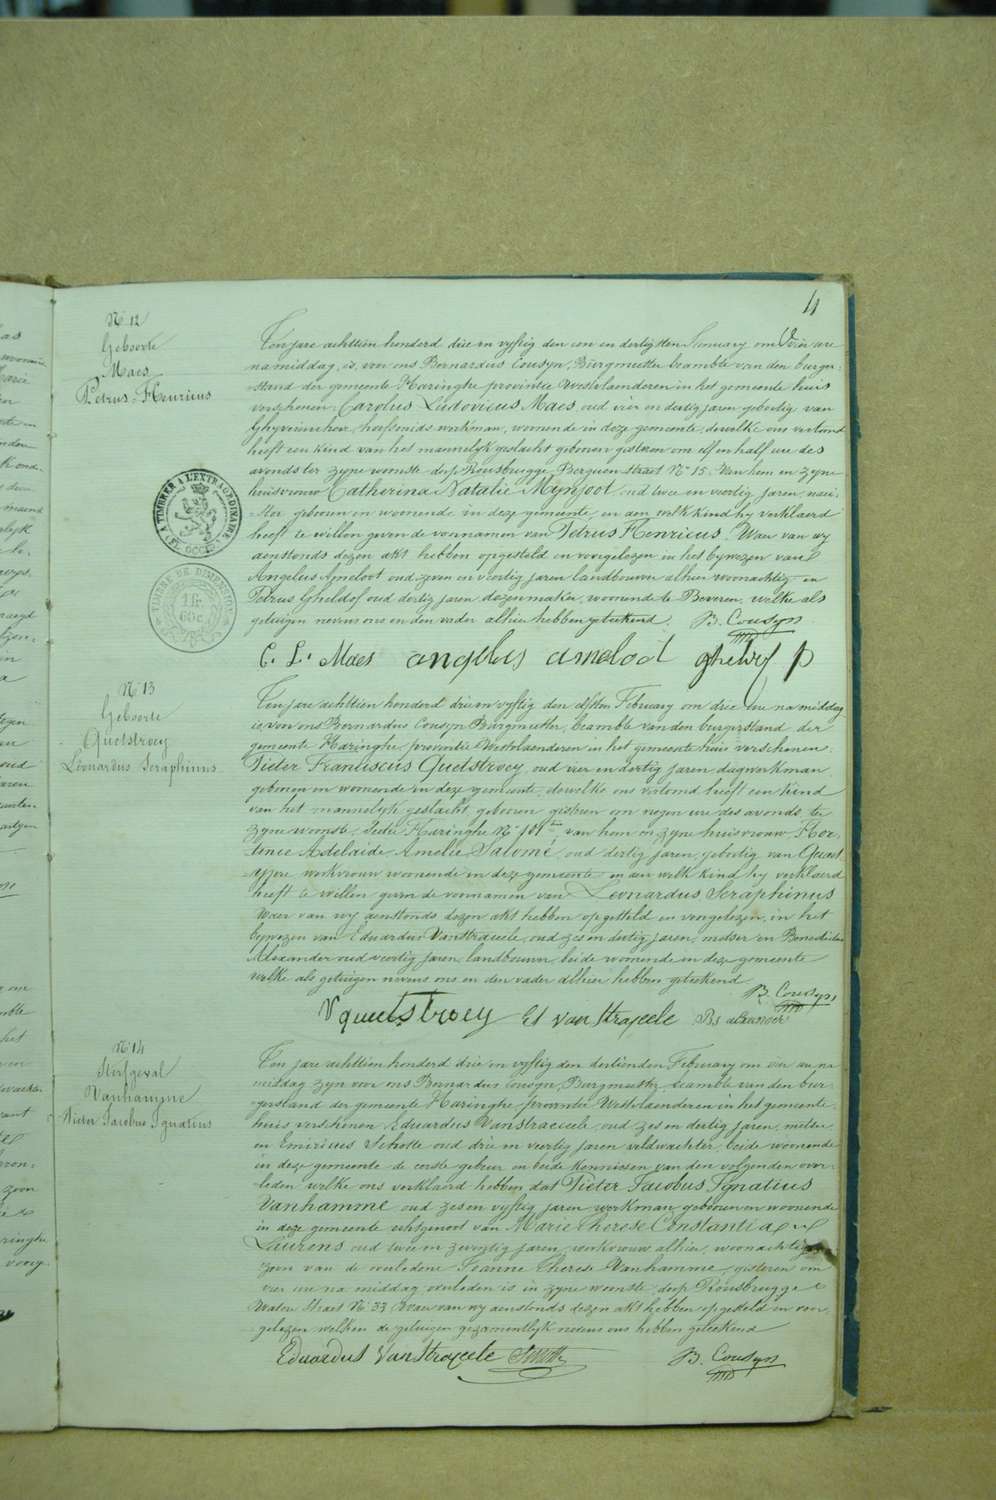 4
N° 12
Geboorte
Maes
Petrus Henricus
Ten jare achttien honderd drie en vyftig den een en dertigsten January om vier ure
na middag, is, voor ons Bernardus Cousyn, Burgmeester beambte van den burger-
-stand der gemeente Haringhe provintie Westvlaenderen in het gemeente huis
verschenen: Carolus Ludovicus Maes, oud vier en dertig jaren geboortig van
Ghyverinchove, hoefsmids werkman, woonende in deze gemeente, dewelke ons vertoond
heeft een kind van het mannelyk geslacht geboren gisteren om elf en half ure des
avonds ter zyne woonste dorp Rousbrugge Berguen straet N° 15. Van hem en zyne
huisvrouw Catherina Natalie Mynjoot, oud twee en veertig jaren, naei-
-ster geboren en woonende in deze gemeente, en aen welk kind hy verklaerd
heeft te willen geven de voornamen van Petrus Henricus. Waer van wy
aenstonds dezen akt hebben opgesteld en voorgelezen in het bywezen van
Angelus Ameloot oud zeven en veertig jaren landbouwer alhier woonachtig en
Petrus Gheldof oud dertig jaren, woonende te Beveren, welke als
getuigen nevens ons en den vader alhier hebben geteekend. B. Cousyn
C. L. Maes angelus ameloot
A TIMBRER A L'EXTRAORDINAIRE
(FL. OCCID.)
TIMBRE DE DIMENSION
1 fr.
60 c.
N° 13
Geboorte
Quetstroey
Leonardus Seraphinus
Ten jare achttien honderd drie en vyftig den elfsten February om drie ure na middag
is, voor ons Bernardus Cousyn Burgmeester, beambte van den burgerstand der
gemeente Haringhe, provintie Westvlaenderen in het gemeente huis verschenen:
Pieter Franciscus Quetstroey, oud vier en dertig jaren dagwerkman
geboren en woonende in deze gemeente, dewelke ons vertoond heeft een kind
van het mannelyk geslacht geboren gisteren om negen ure des avonds te
zyne woonste, Haringhe N° van hem en zyne huisvrouw Hor-
tence Adelaide Amelie Salomé, oud dertig jaren, geboortig van
werkvrouw woonende in deze gemeente en aen welk kind hy verklaerd
heeft te willen geven de voornamen van Leonardus Seraphinus
Waer van wy aenstonds dezen akt hebben opgesteld en voorgelezen, in het
bywezen van Eduardus Vanstraceele, oud zes en dertig jaren, en Benedictus
Alexander oud veertig jaren, landbouwer, beide woonende in deze gemeente
welke als getuigen nevens ons en den vader alhier hebben geteekend.
B. Cousyn
quetstroey Ed van straceele
N° 14
Sterfgeval
Vanhamme
Pieter Jacobus Ignatius
Ten jare achttien honderd drie en vyftig den dertienden February om vier ure na
middag zyn voor ons Bernardus Cousyn, Burgmeester beambte van den bur-
gerstand der gemeente Haringhe, provintie Westvlaenderen in het gemeente
huis verschenen Eduardus Vanstraceele, oud zes en dertig jaren,
en Emiricus Scholte oud drie en veertig jaren veldwachter, beide woonende
in deze gemeente de eerste gebuer en beide kennissen van den volgenden over-
leden welke ons verklaerd hebben dat Pieter Jacobus Ignatius
Vanhamme, oud zes en vyftig jaren werkman, geboren en woonende
in deze gemeente echtgenoot van Marie Therese Constantia
Laurens oud twee en zeventig jaren, werkvrouw alhier, woonachtig
zoon van de overledene Joanne Therese Vanhamme, gisteren om
vier ure na middag overleden is in zyne woonste, dorp Rousbrugge
Watou straet N° 33 Waer van wy aenstonds dezen akt hebben opgesteld en voor-
gelezen welken de getuigen gezamentlyk nevens ons hebben geteekend
Eduardus Vanstraceele B. Cousyn